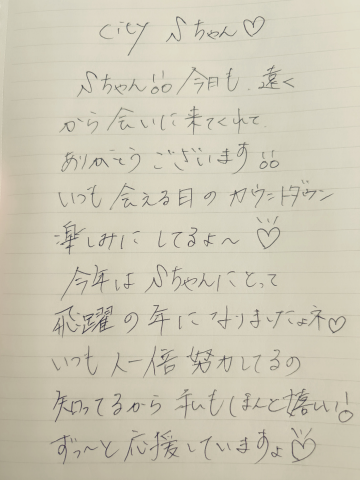 city Sちゃん♡
Sちゃん!! 今日も、遠く
から会いに来てくれて
ありがとうございます!!
いつも会える日のカウントダウン
楽しみにしてるよ〜♡
今年はSちゃんにとって
飛躍の年になりましたよネ♡
いつも人一倍努力してるの
知ってるから私もほんと嬉しい!
ずっ〜と応援していますよ♡